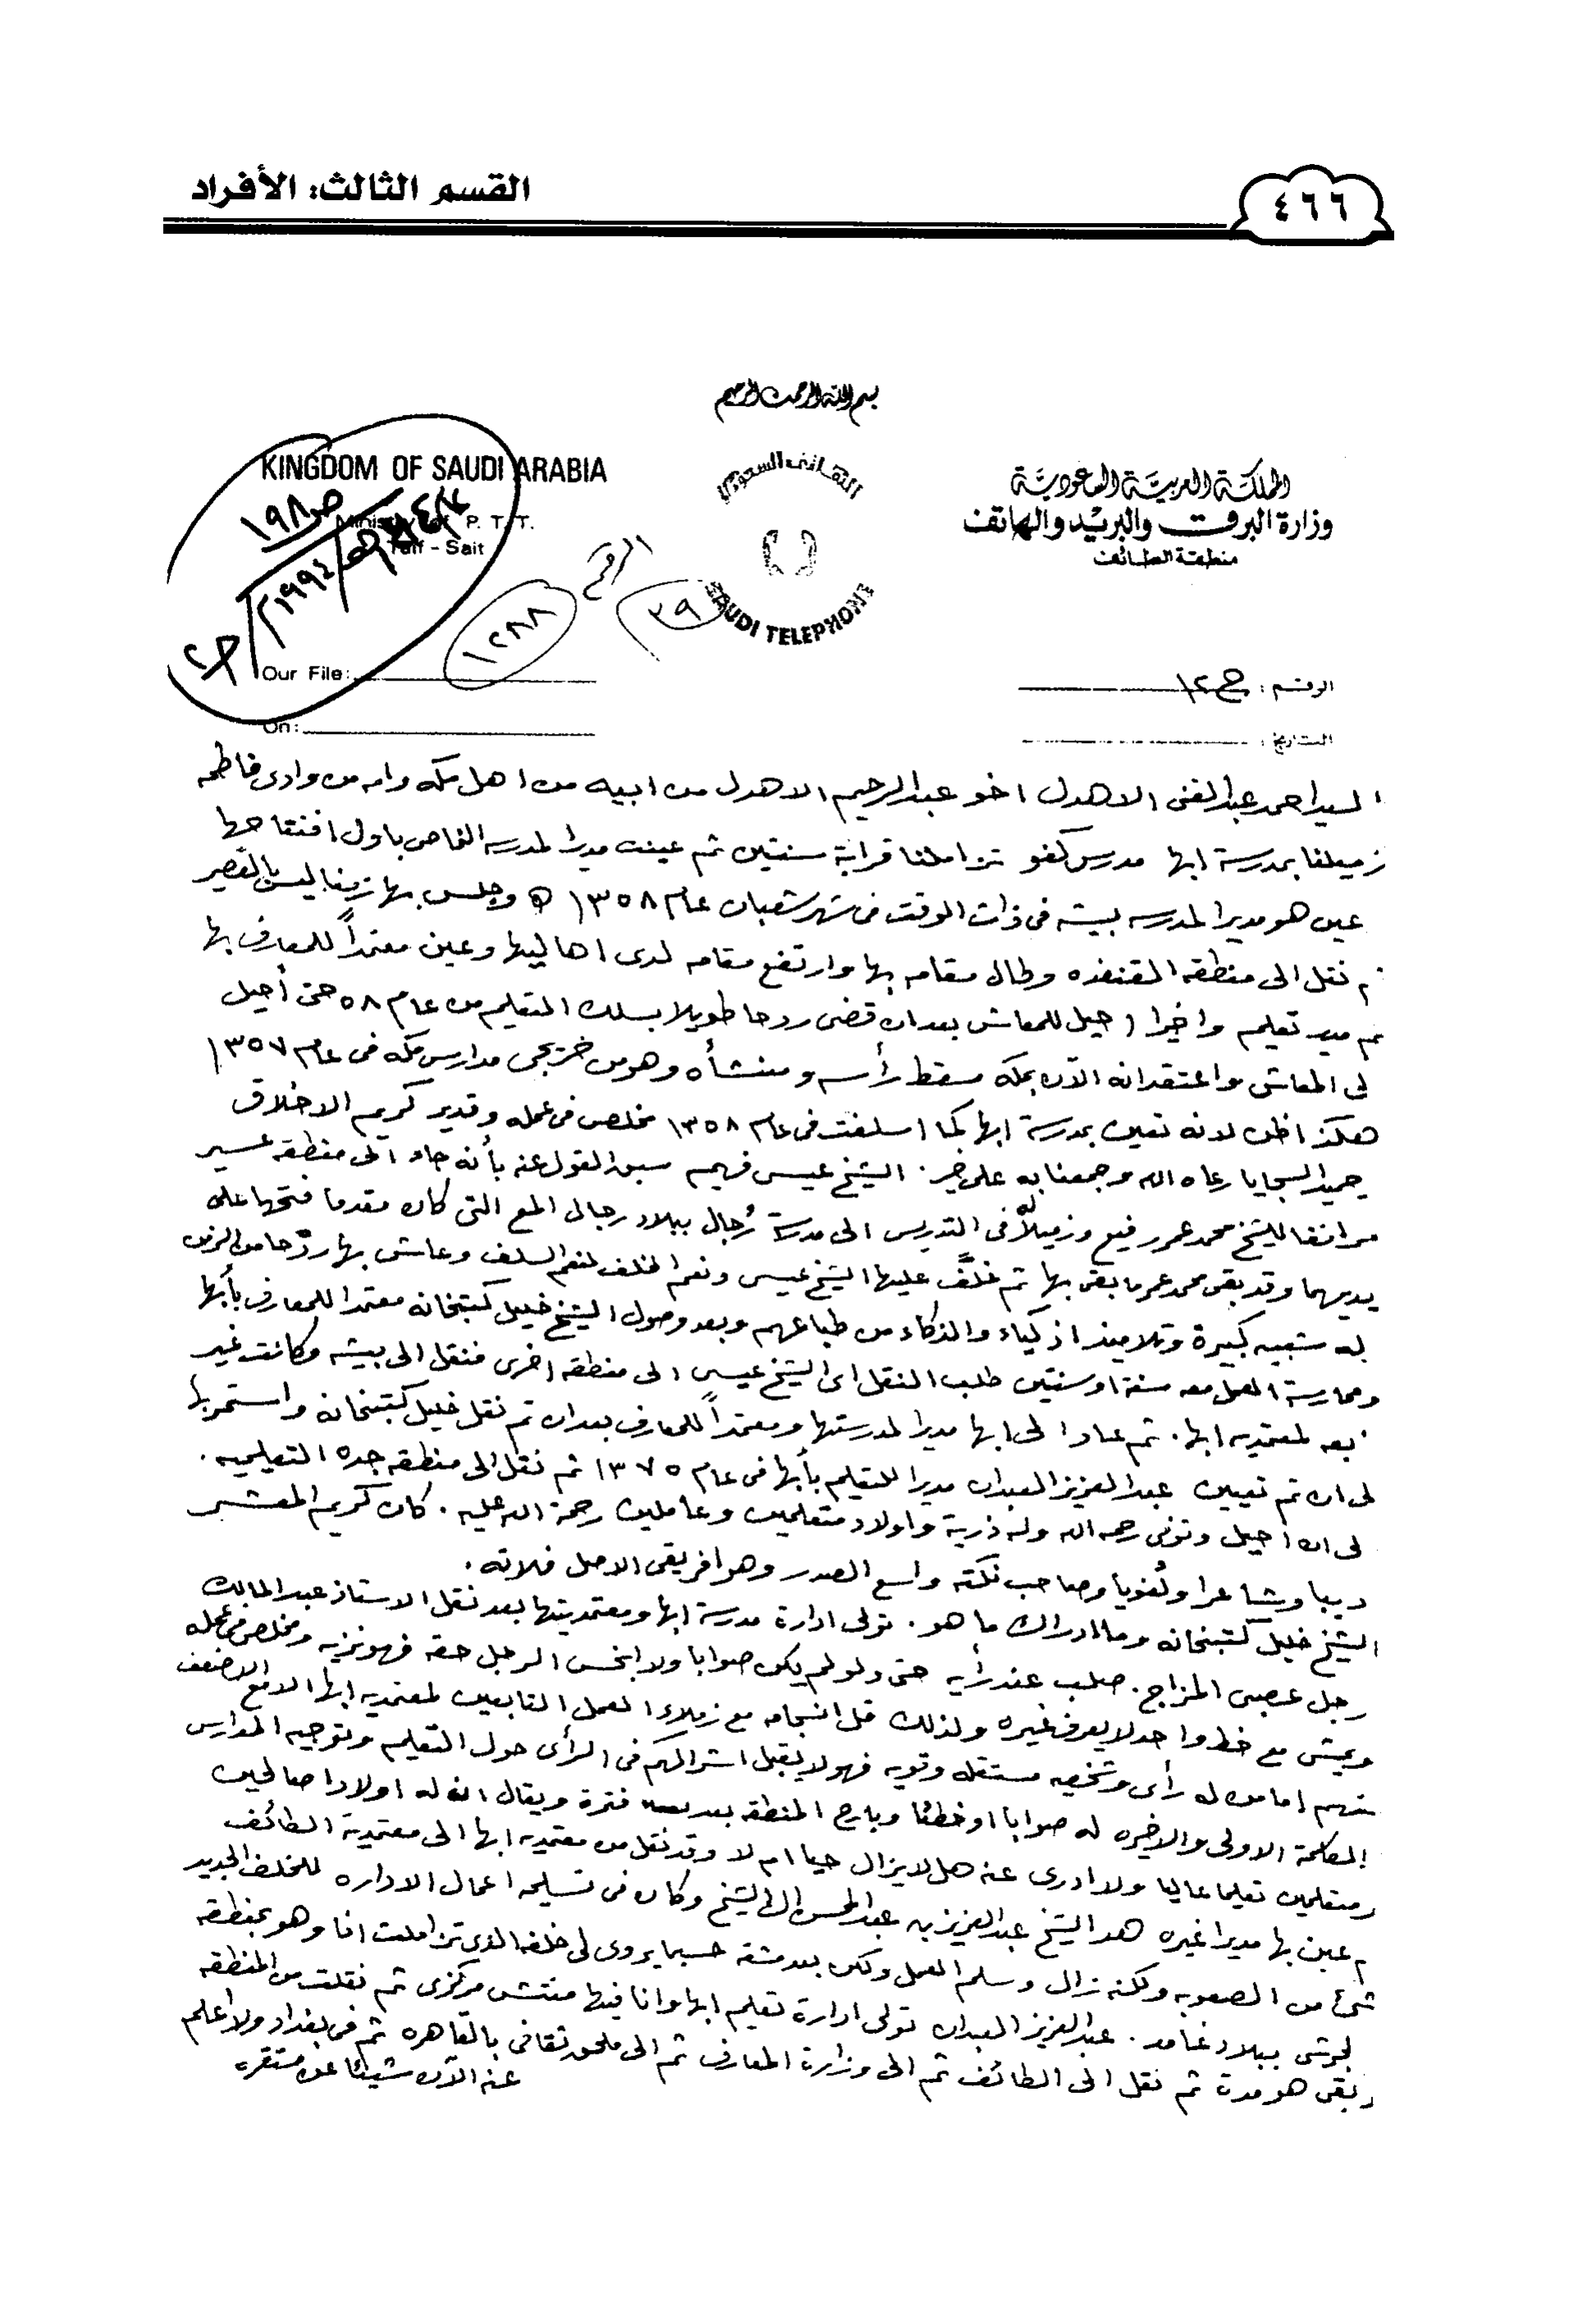 ٤٦٦
القسم الثالث: الأفراد
بسم الله الرحمن الرحيم
KINGDOM OF SAUDI ARABIA
Ministry of P. T. T.
Taif - Sait
المملكة العربية السعودية
وزارة البرق والبريد والهاتف
منطقة الطائف
الهاتف السعودي
SAUDI TELEPHONE
ص ١٩٨
١٩٩٤م
الرقم
٣٩
١٢٨٨
Our File:
On:
الرقم: ١٢
التاريخ:
السيد احمد عبدالغنى الاهدل اخو عبدالرحيم الاهدل من ابيه من اهل مكه وامه من وادى فاطمه
زميلنا بمدرسة ابها مدرس كفو تزاملنا قرابة سنتين ثم عينت مديرا لمدرسه باول افتتاحها
عين هو مديرا لمدرسه بيشه فى ذات الوقت فى شهر شعبان عام ١٣٥٨ ه وجلس بها زمنا ليس بالقصير
م نقل الى منطقه القنفذه وطال مقامه بها وارتفع مقامه لدى اهاليها وعين معتمداً للمعارف بها
م مدير تعليم واخيرا احيل للمعاش بعد ان قضى ردحا طويلا بسلك التعليم من عام ٥٨ حتى أحيل
لى المعاش واعتقد انه الآن بمكه مسقط رأسه ومنشأه وهو من خريجى مدارس مكه فى عام ١٣٥٧
هكذا اظن لانه تعين بمدرسة ابها كما اسلفت فى عام ١٣٥٨ مخلص فى عمله وقدير كريم الاخلاق
حميد السجايا رعاه الله وجمعنا به على خير. الشيخ عيسى فهيم سبق القول عنه بأنه جاء الى منطقه عسير
مرافقا للشيخ محمد عمر رفيع وزميلاً له فى التدريس الى مدرسة رُجال ببلاد رجال المع التى كان مقدما فتحها على
يديهما وقد بقى محمد عمر ما بقى بها ثم خلّف عليها الشيخ عيسى ونعم الخلف لنعم السلف وعاش بها ردّحا من الزمن
له شعبيه كبيرة وتلاميذ اذكياء والذكاء من طباعهم وبعد وصول الشيخ خليل كتبخانه معتمدا للمعارف بأبها
وممارسة العمل معه سنة او سنتين طلب النقل اى الشيخ عيسى الى منطقه اخرى فنقل الى بيشه وكانت غير
بعه لمعتمديه ابها. ثم عاد الى ابها مديرا لمدرستها ومعتمداً للمعارف بعد ان تم نقل خليل كتبخانه واستمر بها
لى ان تم تعيين عبدالعزيز العبدان مديرا للتعليم بأبها فى عام ١٣٧٥ ثم نقل الى منطقه جده التعليميه.
لى ان احيل وتوفى رحمه الله وله ذرية واولاد متعلمين وعاملين رحمة الله عليه. كان كريم المعشر
ديبا وشاعرا ولُغويا وصاحب نكته واسع الصدر وهو افريقى الاصل فلاته.
الشيخ خليل كتبخانه وما ادراك ما هو. تولى ادارة مدرسة ابها ومعتمديتها بعد نقل الاستاذ عبدالمالك
رجل عصبى المزاج. صلب عند رأيه حتى ولو لم يكن صوابا ولا ابخس الرجل حقه فهو نزيه ومخلص فى عمله
ويمشى مع خط واحد لا يعرف غيره ولذلك قل انسجامه مع زملاء العمل التابعين لمعتمديه ابها الا مع الاضعف
منهم اما من له رأى وشخصيه مستقله وقويه فهو لا يقبل اشراكهم فى الرأى حول التعليم وتوجيه المدارس
الكلمة الاولى والاخيره له صوابا او خطئا وبارح المنطقه بعد فترة ويقال ان له اولادا صالحين
ومتعلمين تعليما عاليا ولا ادرى عنه هل لا يزال حيا ام لا وقد نقل من معتمديه ابها الى معتمدية الطائف
م عين بها مديرا غيره هو الشيخ عبدالعزيز بن عبدالمحسن الشيخ وكان فى تسليمه اعمال الاداره للخلف الجديد
شئ من الصعوبه ولكنه زال وسلم العمل ولكن بعد مشقه حسبما يروى لى خلفه الذى تزاملت انا وهو بمنطقه
لجرشى ببلاد غامد. عبدالعزيز العبدان تولى ادارة تعليم ابها وانا فيها مفتش مركزى ثم نقلت من المنطقه
وبقى هو مدة ثم نقل الى الطائف ثم الى وزارة المعارف ثم الى ملحق ثقافى بالقاهره ثم فى بغداد ولا اعلم
عنه الآن شيئا عن مستقره